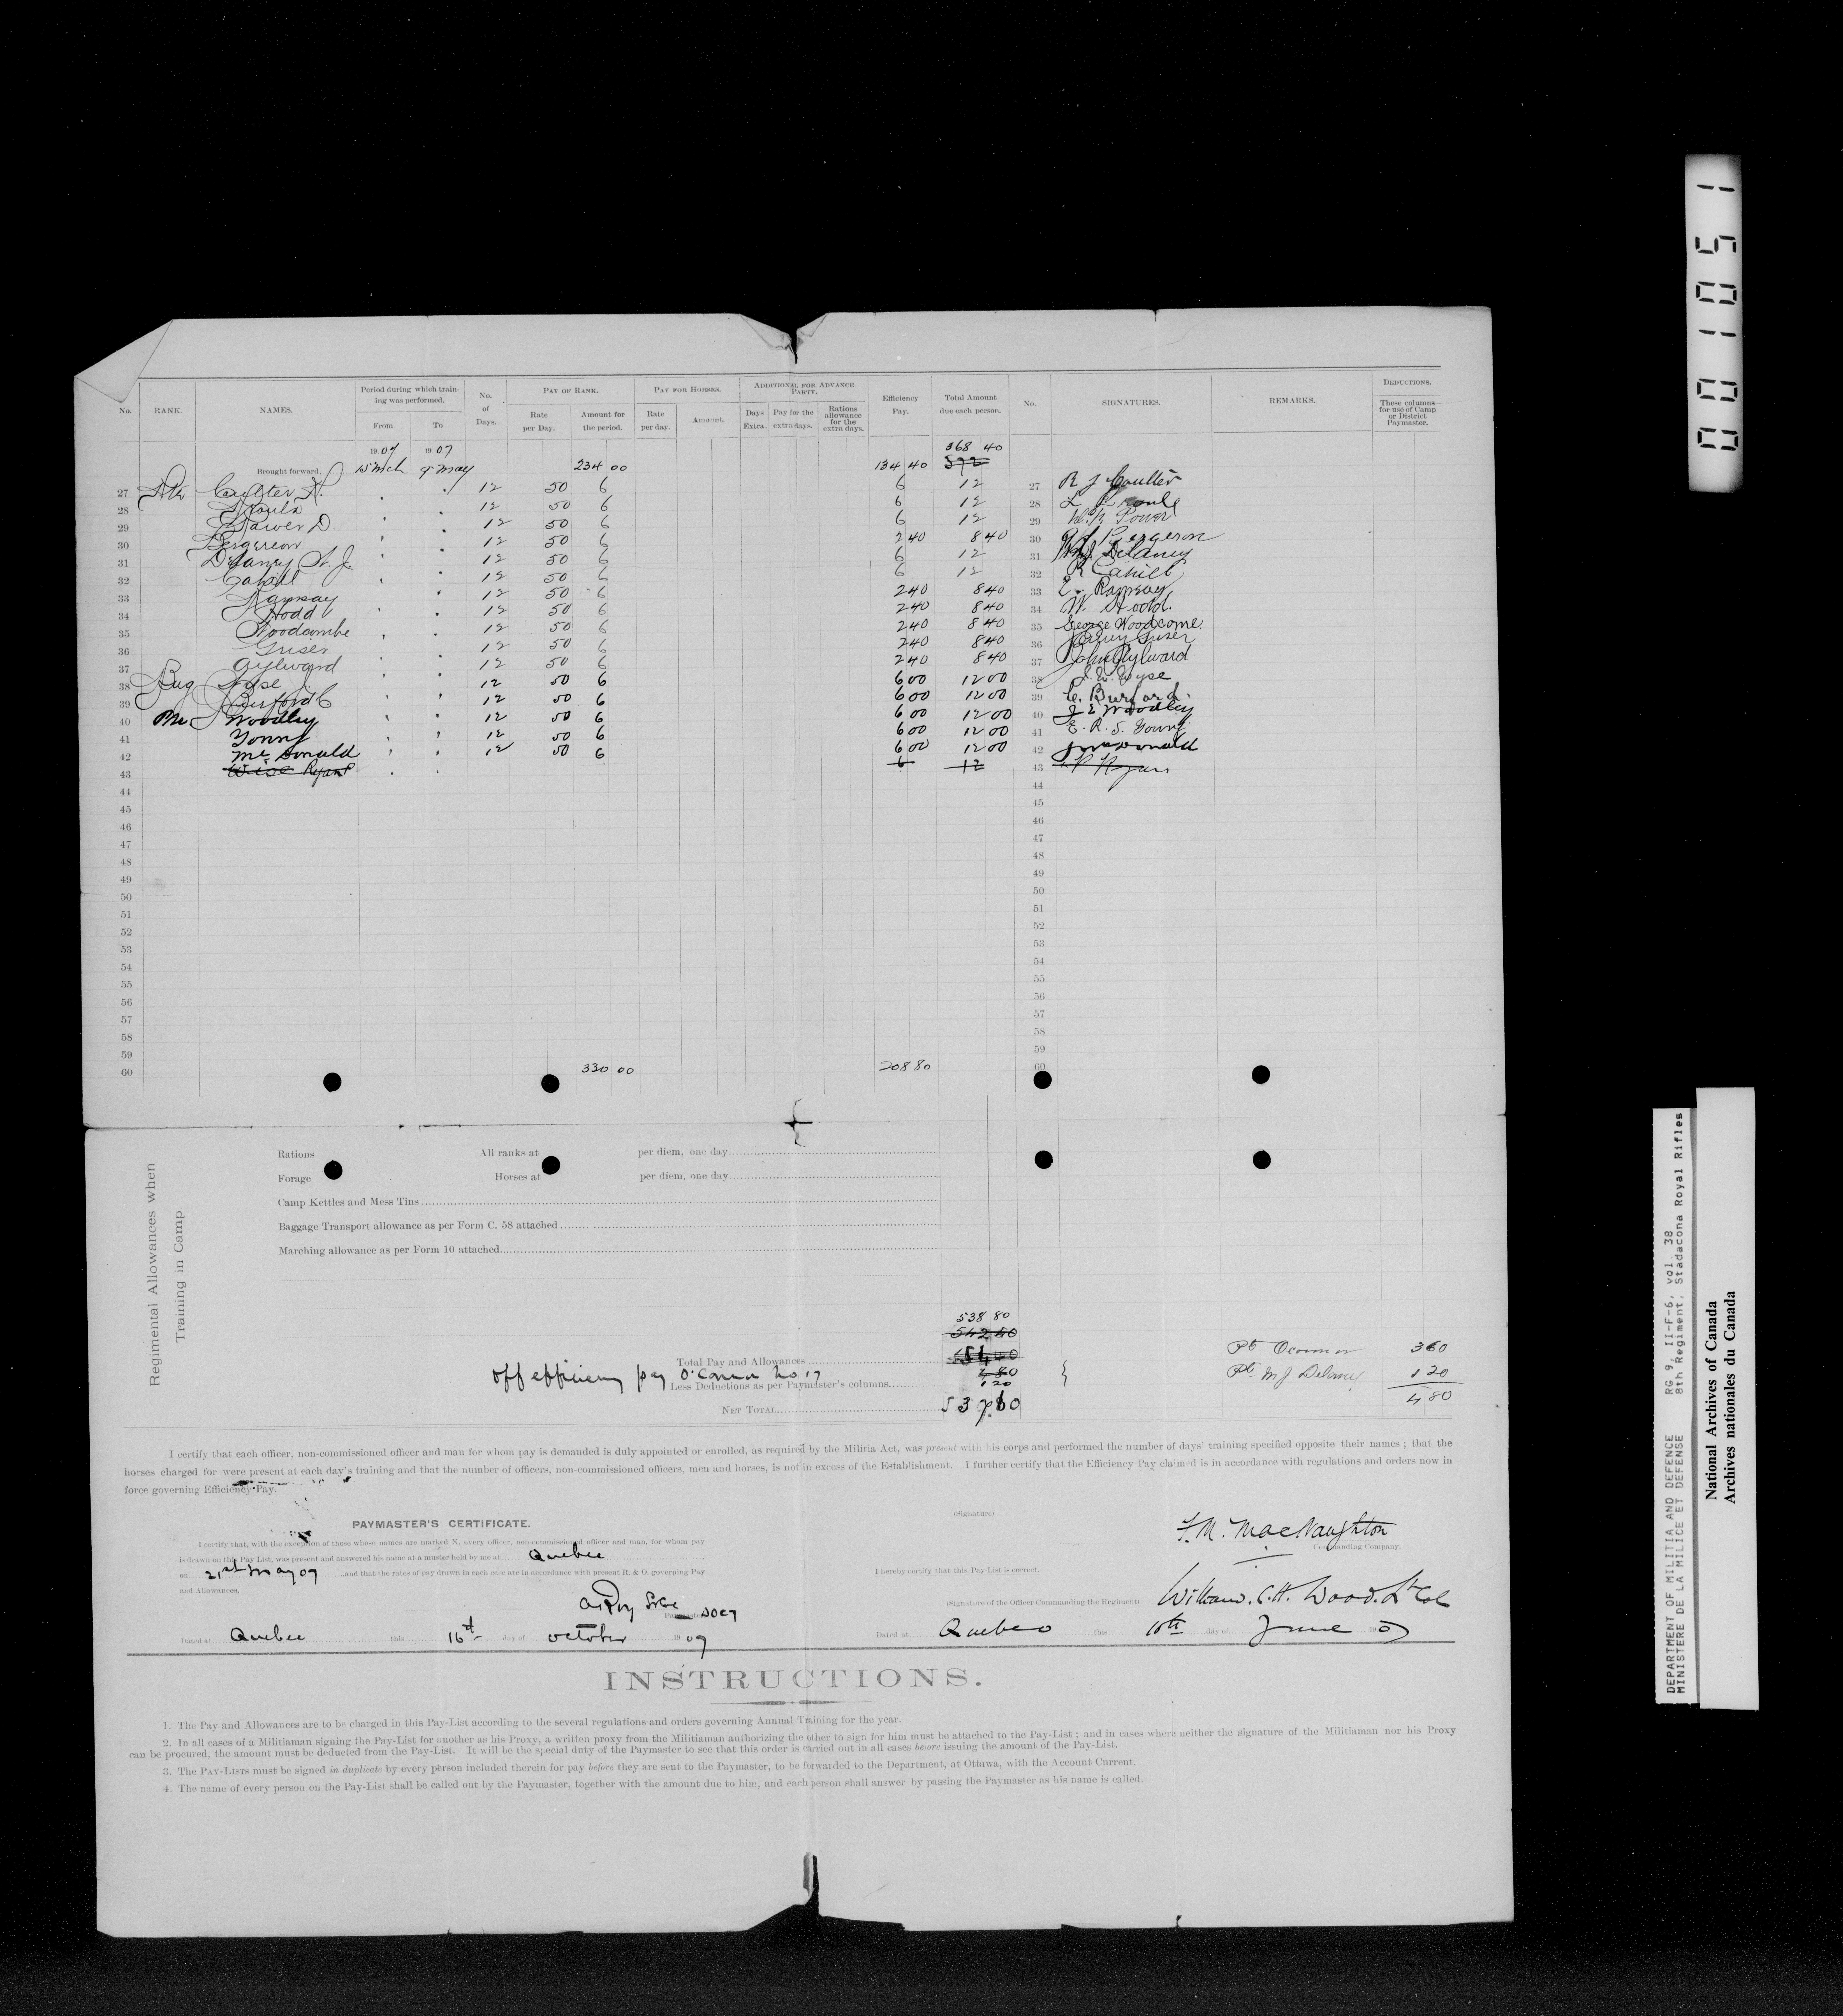 No. RANK. NAMES. Period during which training was performed. From To No. of Days. PAY OF RANK. Rate per Day. Amount for the period. PAY FOR HORSES. Rate per day. Amount. ADDITIONAL FOR ADVANCE PARTY. Days Extra. Pay for the extra days. Rations allowance for the extra days. Efficiency Pay. Total Amount due each person. No. SIGNATURES. REMARKS. DEDUCTIONS. These columns for use of Camp or District Paymaster.
1907 1907 368 40
Brought forward, 15 Mch 9 May 234 00 134 40 572
27 Coulter R. 12 50 6 6 12 27 R J Coulter
28 12 50 6 6 12 28
29 Power D. 12 50 6 6 12 29 Power
30 Bergeron 12 50 6 2 40 8 40 30 Bergeron
31 Delaney 12 50 6 6 12 31 Delaney
32 Cahill 12 50 6 6 12 32 R Cahill
33 Ramsay 12 50 6 2 40 8 40 33 E. Ramsay
34 Hodd 12 50 6 2 40 8 40 34 W. Hodd.
35 Woodcombe 12 50 6 2 40 8 40 35 George Woodcome.
36 Griser 12 50 6 2 40 8 40 36
37 Aylward 12 50 6 2 40 8 40 37 John Aylward
38 Bug 12 50 6 6 00 12 00 38 Wyse
39 Burford C 12 50 6 6 00 12 00 39 C. Burford.
40 Woodley 12 50 6 6 00 12 00 40 J E Woodley
41 Young 12 50 6 6 00 12 00 41 E. R. S. Young
42 McDonald 12 50 6 6 00 12 00 42 J McDonald
43 Wise Ryan P 6 12 43 P Ryan
44 44
45 45
46 46
47 47
48 48
49 49
50 50
51 51
52 52
53 53
54 54
55 55
56 56
57 57
58 58
59 59
60 330 00 208 80 60
Regimental Allowances when Training in Camp
Rations All ranks at per diem, one day
Forage Horses at per diem, one day
Camp Kettles and Mess Tins
Baggage Transport allowance as per Form C. 58 attached
Marching allowance as per Form 10 attached
538 80
542 40
Total Pay and Allowances Pte Oconnor 3 60
off efficiency pay O'Connor No 17
Less Deductions as per Paymaster's columns 4 80 1 20 Pte M J Delaney 1 20
NET TOTAL 537 60 4 80
I certify that each officer, non-commissioned officer and man for whom pay is demanded is duly appointed or enrolled, as required by the Militia Act, was present with his corps and performed the number of days' training specified opposite their names ; that the
horses charged for were present at each day's training and that the number of officers, non-commissioned officers, men and horses, is not in excess of the Establishment. I further certify that the Efficiency Pay claimed is in accordance with regulations and orders now in
force governing Efficiency Pay.
PAYMASTER'S CERTIFICATE.
I certify that, with the exception of those whose names are marked X, every officer, non-commissioned officer and man, for whom pay
is drawn on this Pay List, was present and answered his name at a muster held by me at Quebec
on 21st May 07 and that the rates of pay drawn in each case are in accordance with present R. & O. governing Pay
and Allowances.
Dated at Quebec this 16th day of October 1907
(Signature) F. M. MacNaughton
Commanding Company.
I hereby certify that this Pay-List is correct.
(Signature of the Officer Commanding the Regiment) William. C. H. Wood. Lt Col
Dated at Quebec this 10th day of June 1907
INSTRUCTIONS.
1. The Pay and Allowances are to be charged in this Pay-List according to the several regulations and orders governing Annual Training for the year.
2. In all cases of a Militiaman signing the Pay-List for another as his Proxy, a written proxy from the Militiaman authorizing the other to sign for him must be attached to the Pay-List ; and in cases where neither the signature of the Militiaman nor his Proxy
can be procured, the amount must be deducted from the Pay-List. It will be the special duty of the Paymaster to see that this order is carried out in all cases before issuing the amount of the Pay-List.
3. The PAY-LISTS must be signed in duplicate by every person included therein for pay before they are sent to the Paymaster, to be forwarded to the Department, at Ottawa, with the Account Current.
4. The name of every person on the Pay-List shall be called out by the Paymaster, together with the amount due to him, and each person shall answer by passing the Paymaster as his name is called.
001051
DEPARTMENT OF MILITIA AND DEFENCE RG 9, II-F-6, vol. 38
MINISTERE DE LA MILICE ET DEFENSE 8th Regiment, Stadacona Royal Rifles
National Archives of Canada
Archives nationales du Canada